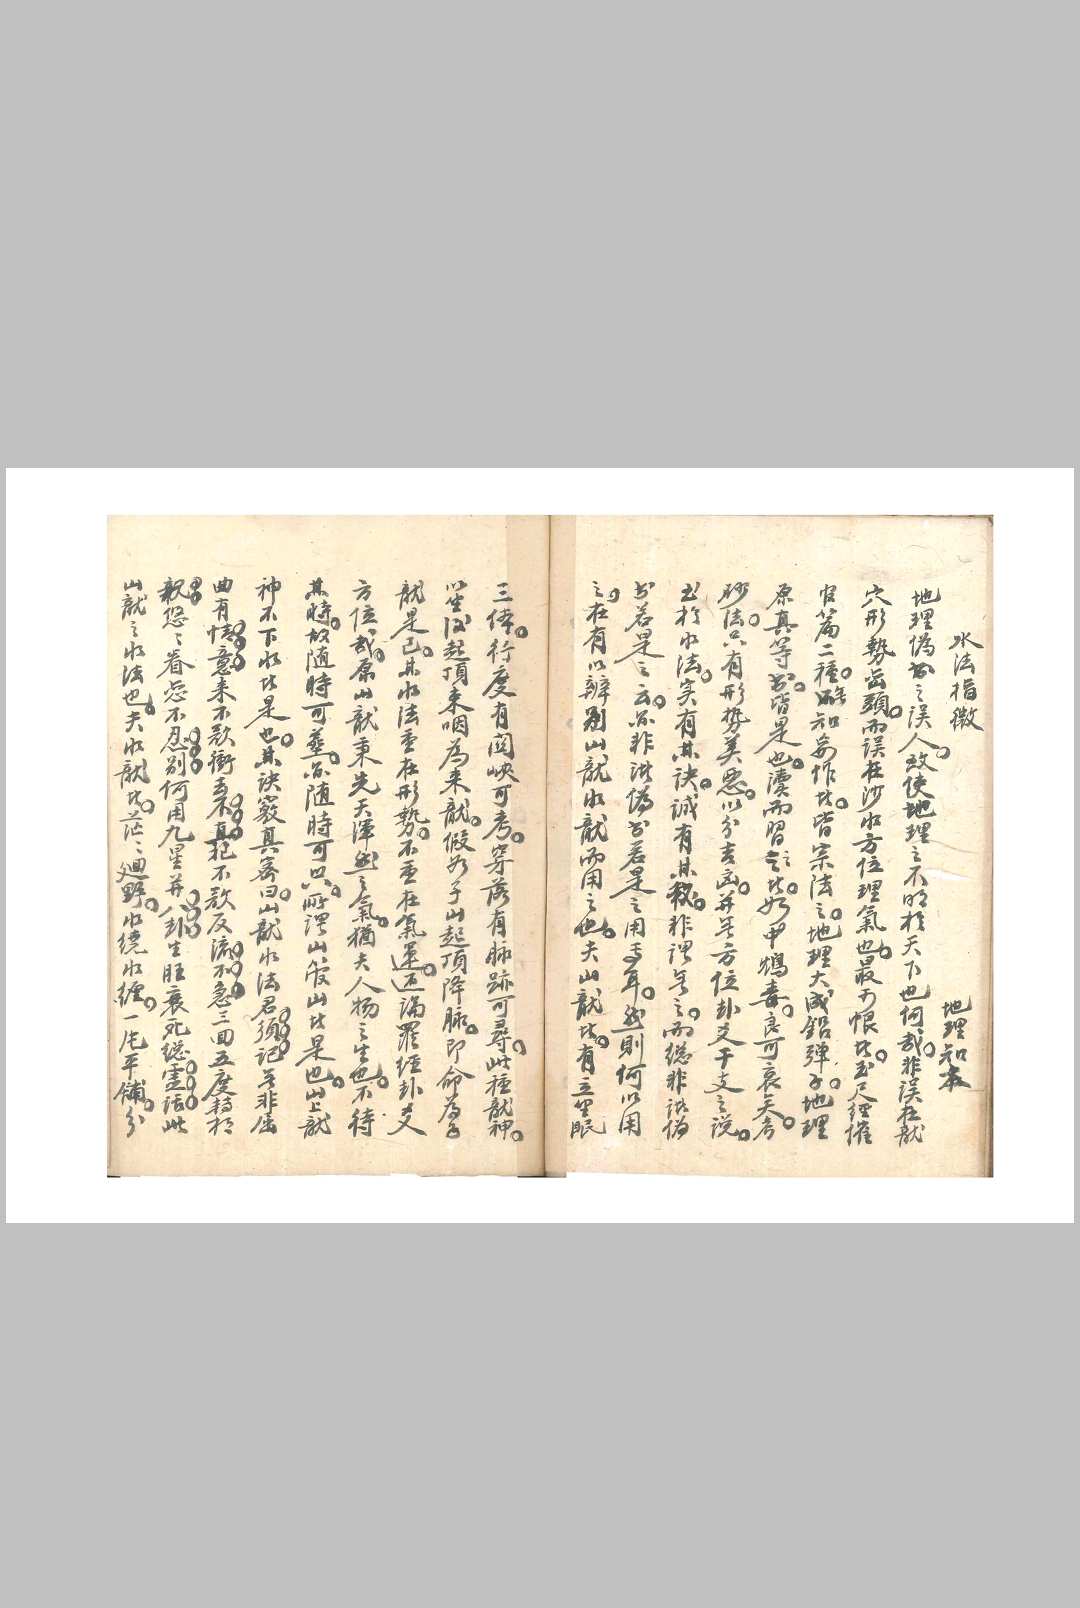 水法指微
地理知本
地理偽書之誤人。致使地理之不明於天下也何哉。非誤在龍
穴形勢巒頭。而誤在沙水方位理氣也。最可恨者。玉尺經催
官篇二種。略知妄作者。皆宗法之。地理大成鉛彈子。地理
原真等書。皆是也。讀而習之者。如甲鴆毒。良可哀矣。考
砂法。只有形勢美惡。以分吉凶。并無方位卦爻干支之說。
至於水法。实有其訣。誠有其秘。非謂無之。而総非諸偽
書若是之云。亦非諸偽書若是之用事耳。然則何以用
之。在有以辨别山龍水龍而用之也。夫山龍者。有立坐眠
三体。行度有関峽可考。穿落有脉跡可尋。此種龍神。
以坐後起頂束咽為来龍。假如子山起頂降脉。即命為子
龍是已。其水法重在形勢。不重在氣運。區論羅經卦爻
方位哉。原山龍秉先天渾然之氣。猶夫人物之生也。不待
其時。故随時可塟。亦随時可只。所謂山管山者是也。山上龍
神不下水者是也。其訣竅真寄曰。山龍水法君須記。無非屈
曲有情意。来不欲衝去不直。犯不欲反流不急。三回五度轉相
親。悠悠眷恋不忍别。何用九星并八卦。生旺衰死総虚話。此
山龍之水法也。夫水龍者。茫茫廻野。水繞水纏。一片平鋪。分